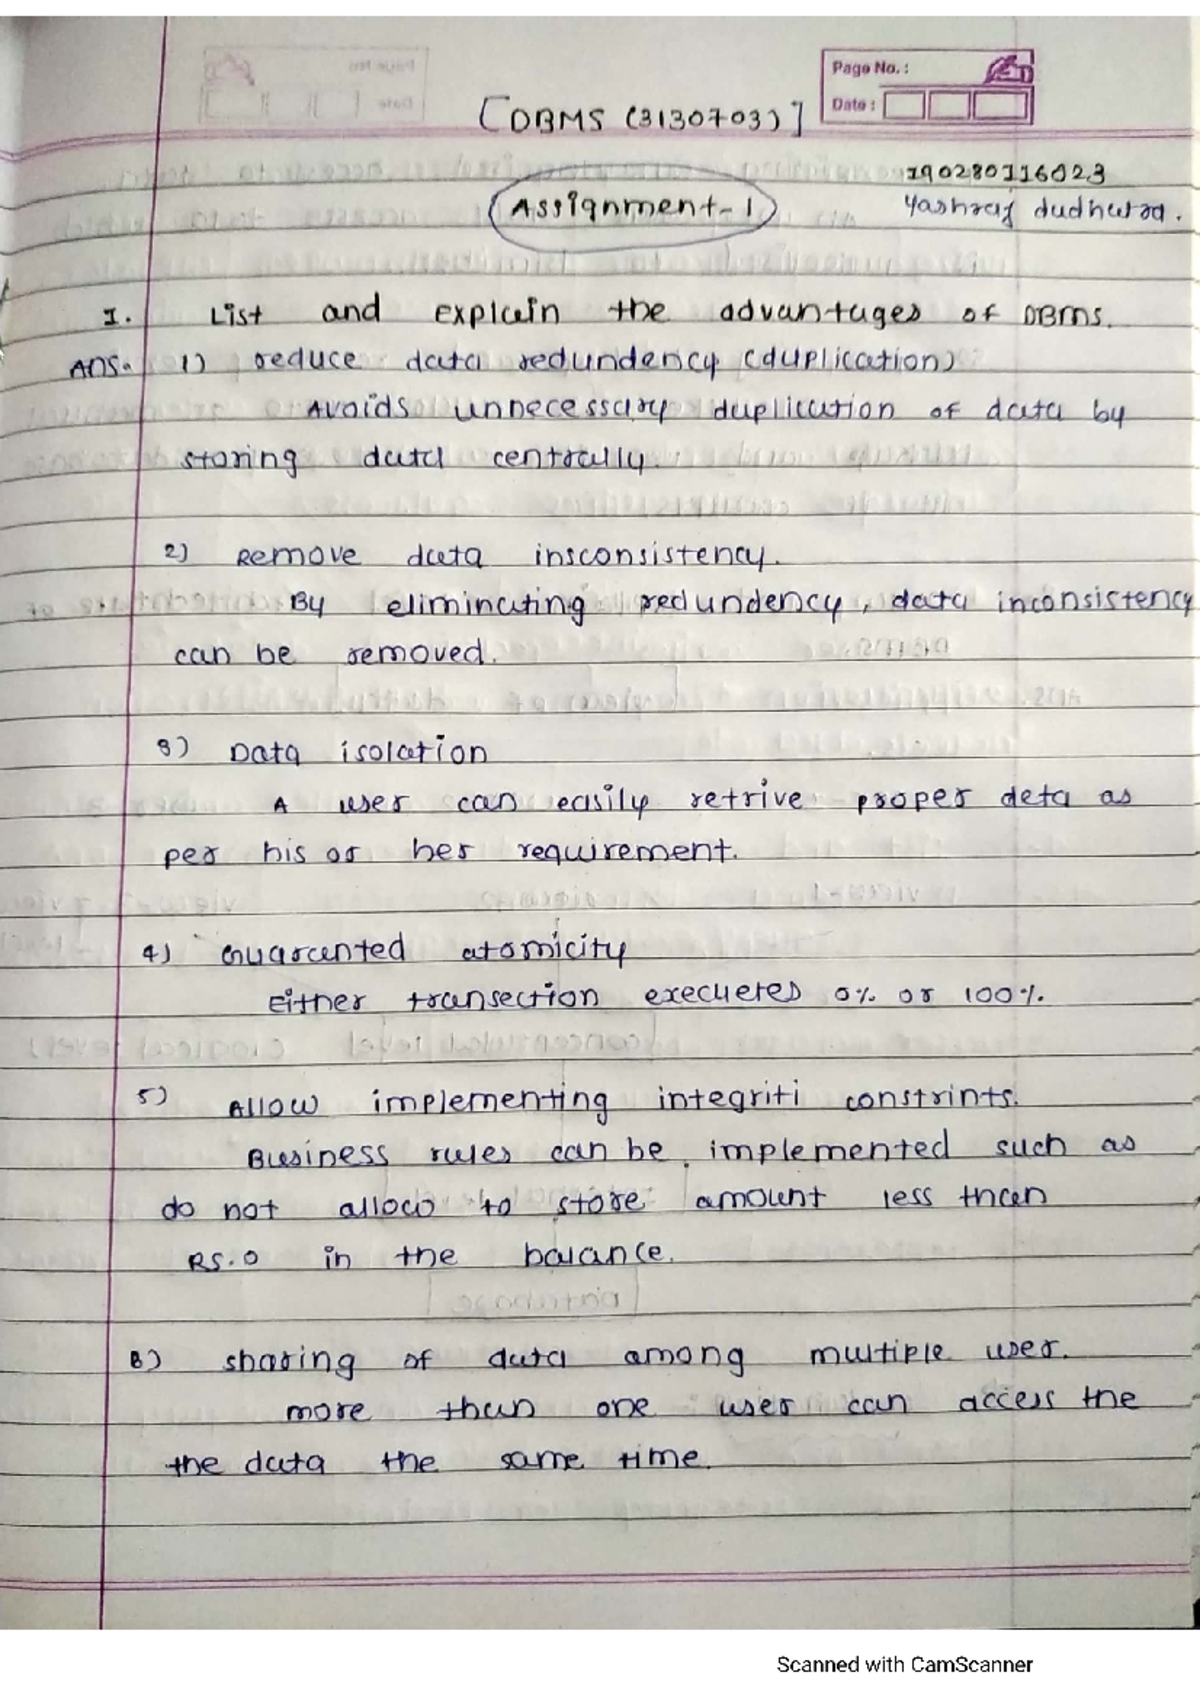 Page No. :
Date :
[DBMS (3130703)]
190280116023
Assignment-1
Yashraj dudhatra.
1. List and explain the advantages of DBMS.
ANS. 1) reduce data redundency (duplication)
Avoids unnecessary duplication of data by
storing data centrally.
2) Remove data insconsistency.
By eliminating redundency, data inconsistency
can be removed.
3) Data isolation
A user can easily retrive proper deta as
per his or her requirement.
4) Guarented atomicity
Either transection execuetes 0% or 100%.
5) Allow implementing integriti constrints.
Business rules can be implemented such as
do not allow to store amount less than
RS.0 in the balance.
6) sharing of data among multiple user.
more than one user can access the
the data the same time.
Scanned with CamScanner